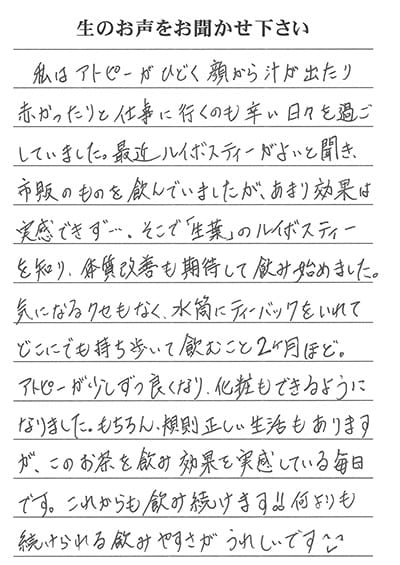 生のお声をお聞かせ下さい
私はアトピーがひどく顔から汁が出たり
赤かったりと仕事に行くのも辛い日々を過ご
していました。最近ルイボスティーがよいと聞き、
市販のものを飲んでいましたが、あまり効果は
実感できず…。そこで「生葉」のルイボスティー
を知り、体質改善も期待して飲み始めました。
気になるクセもなく、水筒にティーバックをいれて
どこにでも持ち歩いて飲むこと2ヶ月ほど。
アトピーが少しずつ良くなり、化粧もできるように
なりました。もちろん、規則正しい生活もあります
が、このお茶を飲み効果を実感している毎日
です。これからも飲み続けます!!何よりも
続けられる飲みやすさがうれしいです